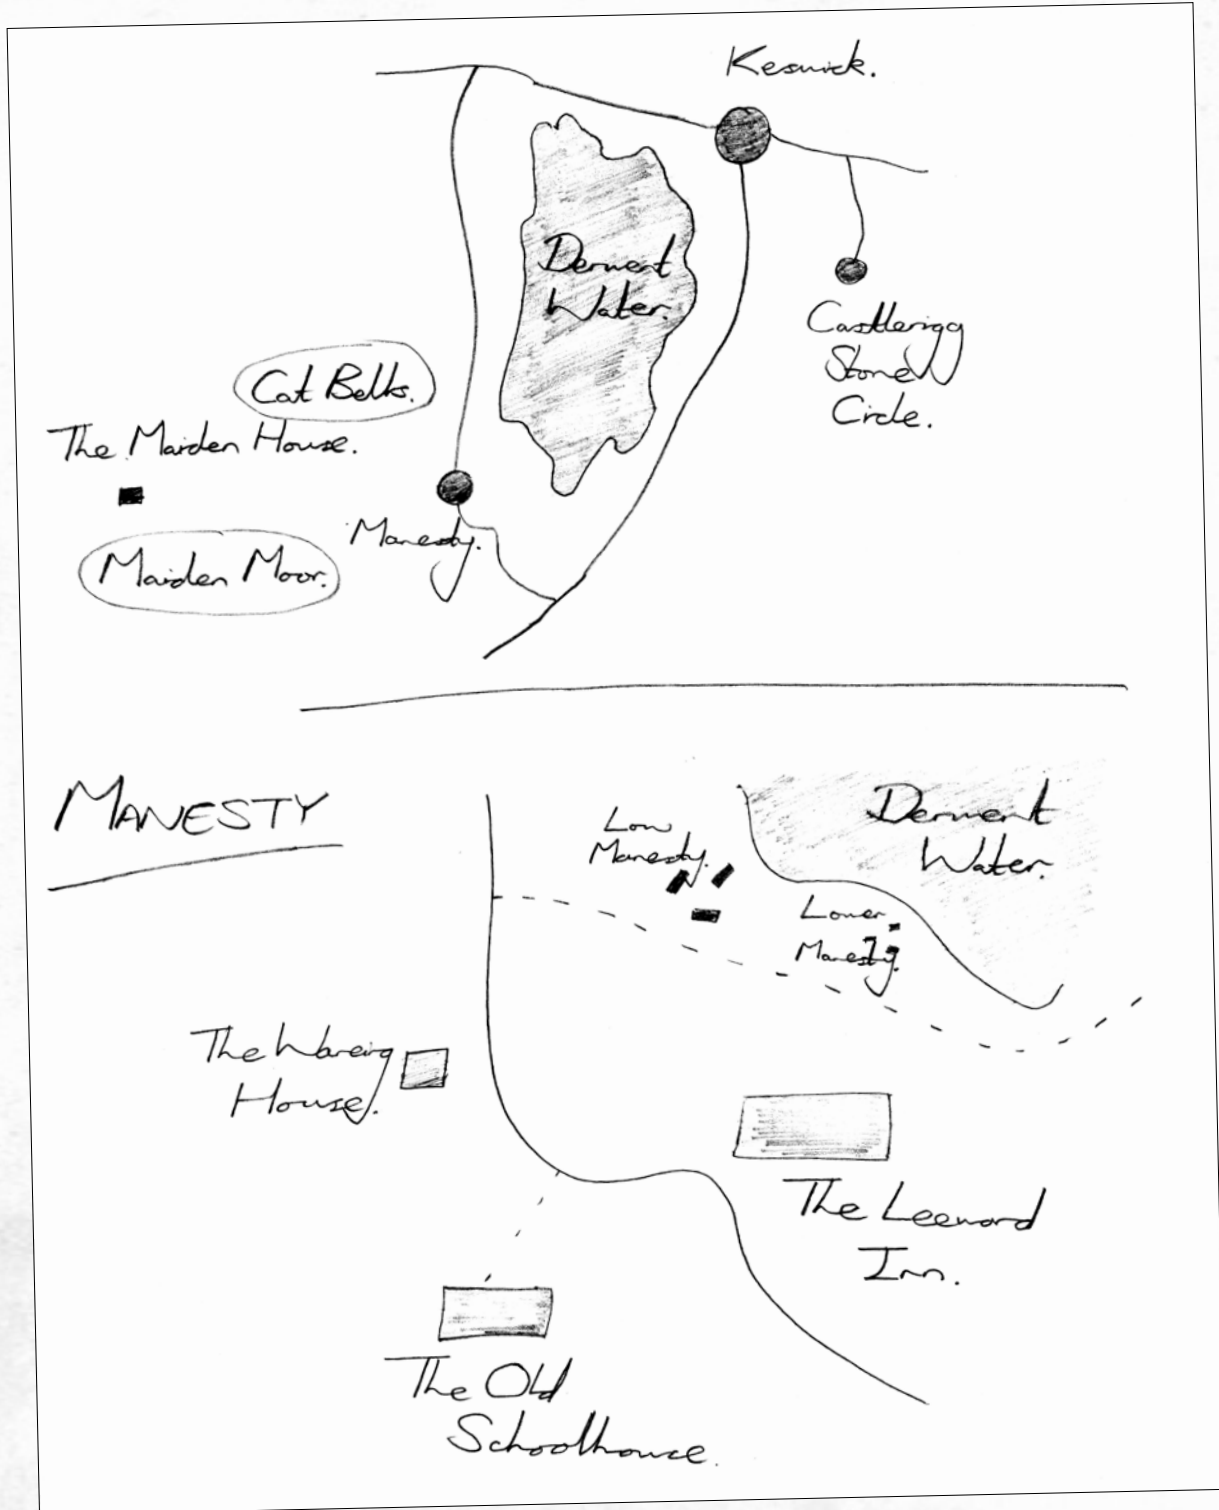 Keswick.
Derwent
Water.
Castlerigg
Stone
Circle.
Cat Bells.
The Maiden House.
Manesty.
Maiden Moor.
MANESTY
Low
Manesty.
Derwent
Water.
Lower
Manesty.
The Wareing
House.
The Leeward
Inn.
The Old
Schoolhouse.